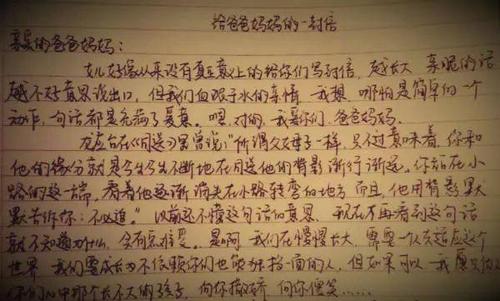 给爸爸妈妈的一封信
亲爱的爸爸妈妈:
女儿好像从来没有真正意义上的给你们写封信,越长大,亲昵的话
越不好意思说出口,但我们血浓于水的亲情,我想,哪怕是简单的一个
动作,一句话都是充满了爱意。嗯,对的,我是爱你们,爸爸妈妈。
龙应台在《目送》里曾说:"所谓父母子女一样,只不过意味着,你和
他的缘分就是今生今世不断地在目送他的背影渐行渐远。你站在小
路的这一端,看着他逐渐消失在小路转弯的地方,而且,他用背影默
默告诉你:不必追。"以前还不懂这句话的意思,现在再看到这句话
就不知道为什么,会有点难受。是啊,我们在慢慢长大,需要一个人去适应这个
世界,我们要成长为不依赖你们也能独挡一面的人,但如果可以,我愿
你们心中那个长不大的孩子,向你撒娇,向你傻笑……